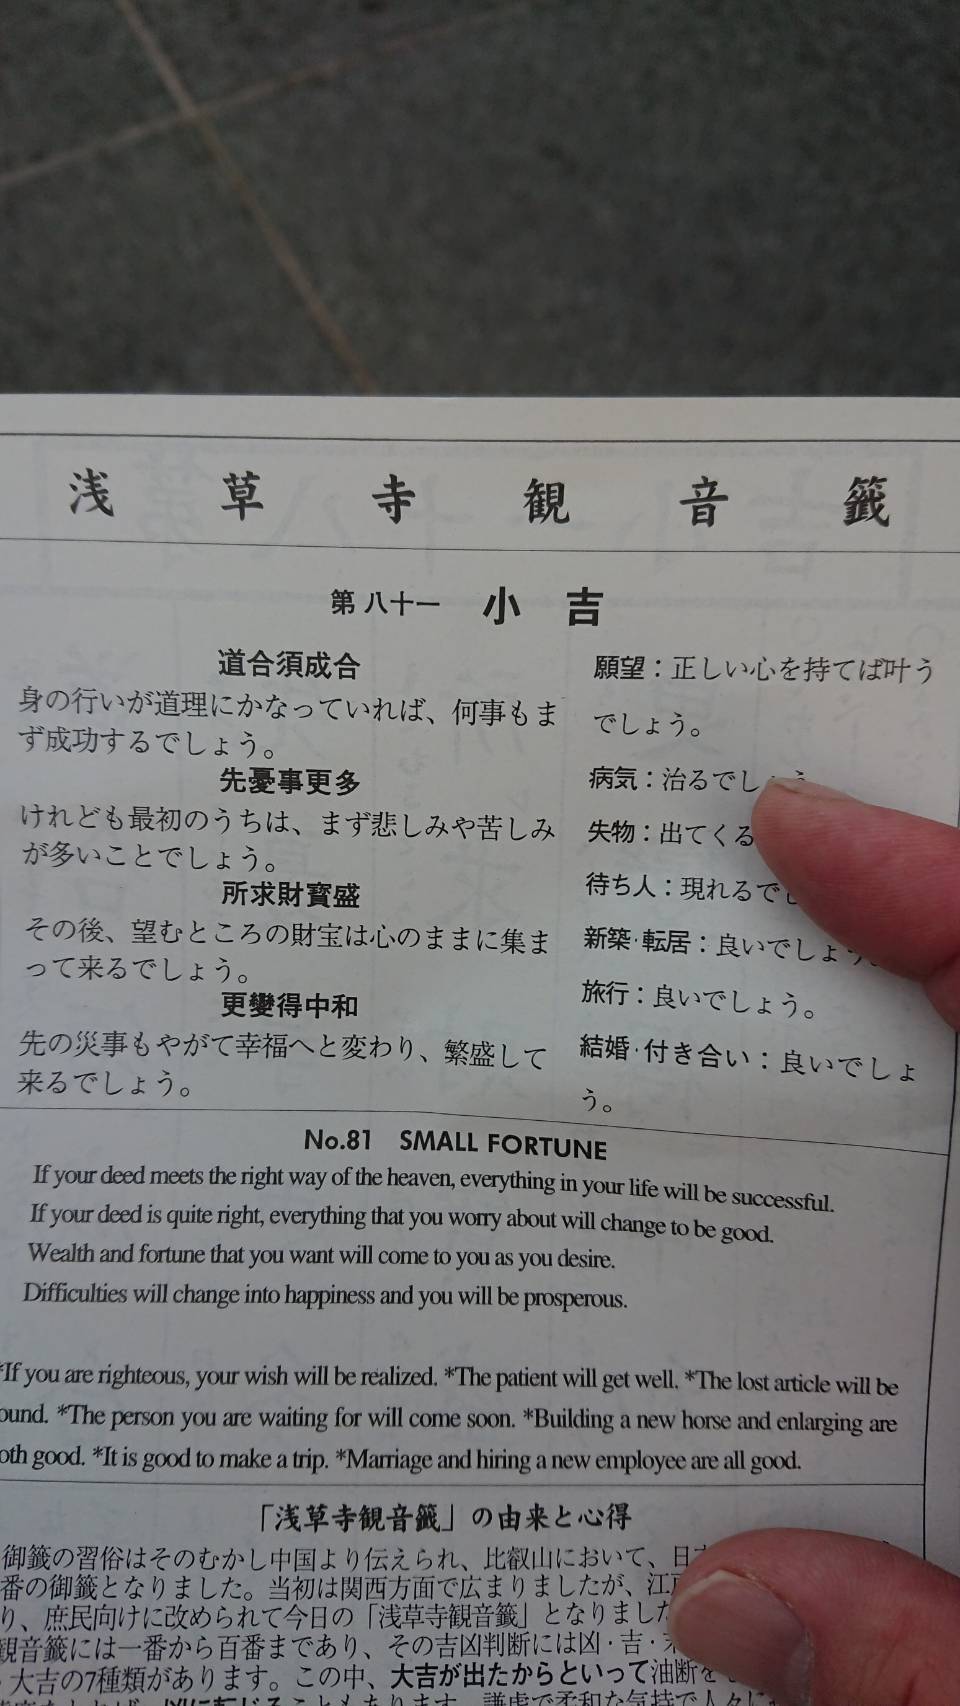 浅草寺観音籤
第八十一 小吉
道合須成合
身の行いが道理にかなっていれば、何事もま
ず成功するでしょう。
先憂事更多
けれども最初のうちは、まず悲しみや苦しみ
が多いことでしょう。
所求財寳盛
その後、望むところの財宝は心のままに集ま
って来るでしょう。
更變得中和
先の災事もやがて幸福へと変わり、繁盛して
来るでしょう。
願望：正しい心を持てば叶う
でしょう。
病気：治るでしょう
失物：出てくる
待ち人：現れるでし
新築･転居：良いでしょう。
旅行：良いでしょう。
結婚･付き合い：良いでしょ
う。
No.81 SMALL FORTUNE
If your deed meets the right way of the heaven, everything in your life will be successful.
If your deed is quite right, everything that you worry about will change to be good.
Wealth and fortune that you want will come to you as you desire.
Difficulties will change into happiness and you will be prosperous.
*If you are righteous, your wish will be realized. *The patient will get well. *The lost article will be
ound. *The person you are waiting for will come soon. *Building a new horse and enlarging are
oth good. *It is good to make a trip. *Marriage and hiring a new employee are all good.
「浅草寺観音籤」の由来と心得
御籤の習俗はそのむかし中国より伝えられ、比叡山において、日
番の御籤となりました。当初は関西方面で広まりましたが、江
り、庶民向けに改められて今日の「浅草寺観音籤」となりました
観音籤には一番から百番まであり、その吉凶判断には凶・吉・末
・大吉の7種類があります。この中、大吉が出たからといって油断を
こともあります。謙虚で柔和な気持で人々に